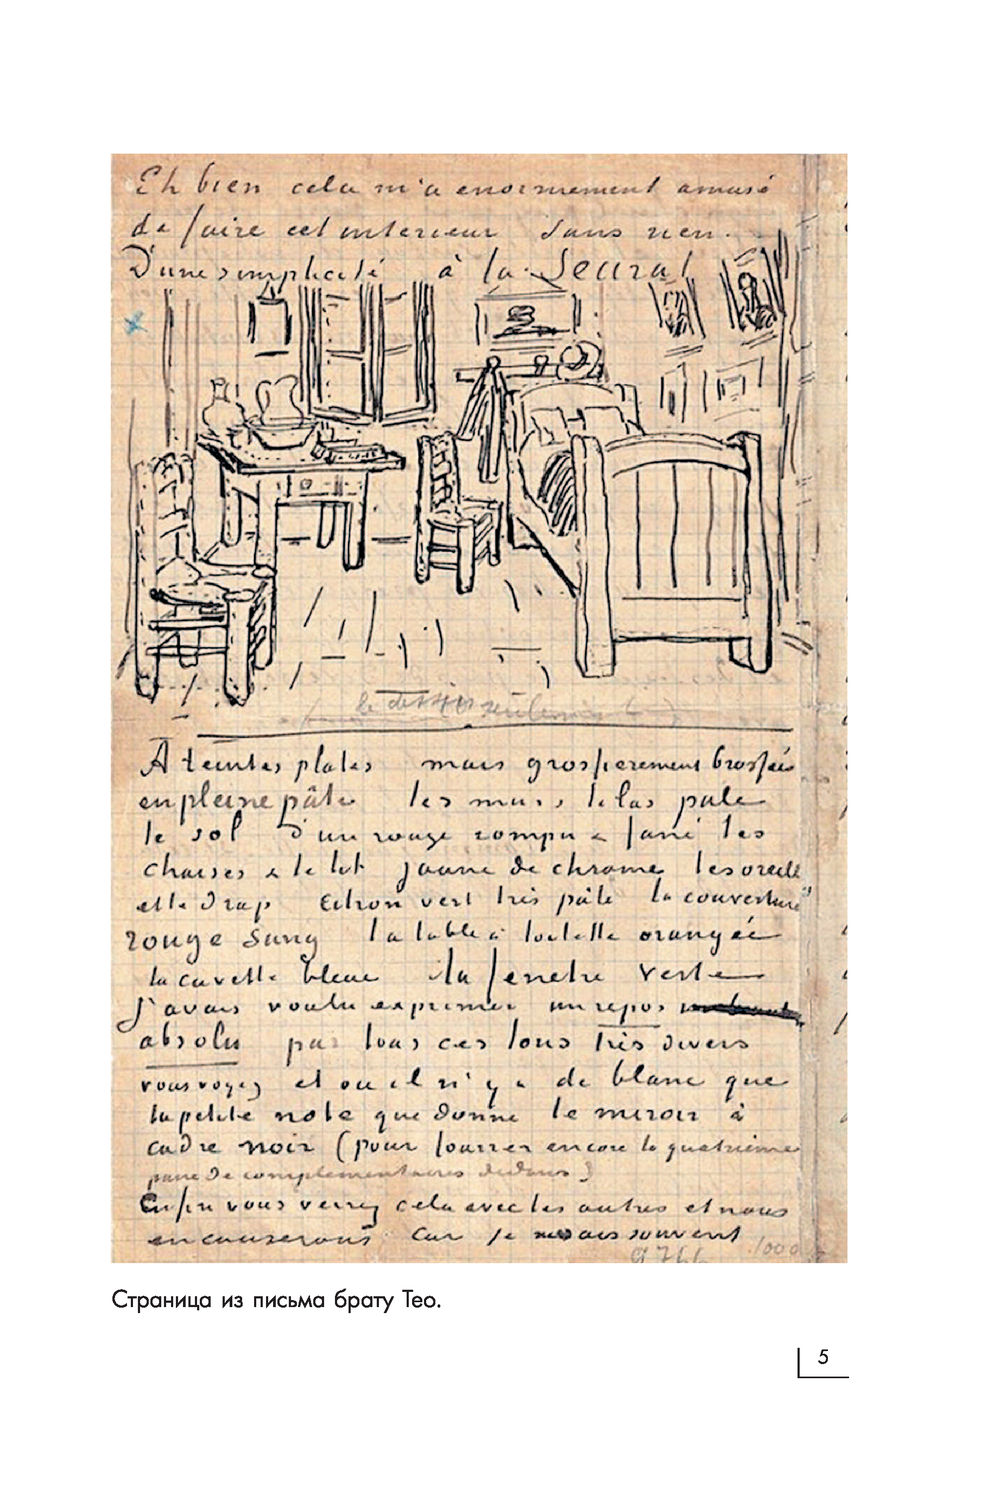 Eh bien cela m'a enormement amusé
de faire cet interieur sans rien.
D'une simplicité à la Seurat
A teintes plates mais grossierement brossées
en pleine pâte les murs lilas pale
le sol d'un rouge rompu & fané les
chaises & le lit jaune de chrome les oreill
et le drap citron vert très pâle la couverture
rouge sang la table à toilette orangée
la cuvette bleue la fenetre verte
J'avais voulu exprimer un repos
absolu par tous ces tons très divers
vous voyez et ou il n'y a de blanc que
la petite note que donne le miroir à
cadre noir (pour fourrer encore la quatrième
paire de complementaires dedans)
Enfin vous verrez cela avec les autres et nous
en causerons car je ne sais souvent
Страница из письма брату Тео.
5